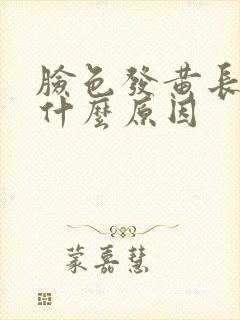 臉色發黃長
什麼原因
蒙嘉慧